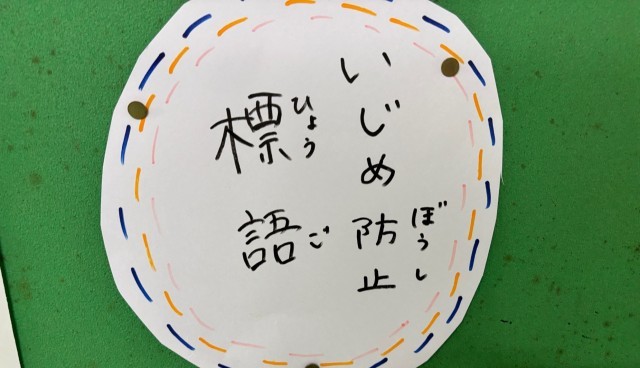 いじめ防止
ぼうし
標語
ひょうご